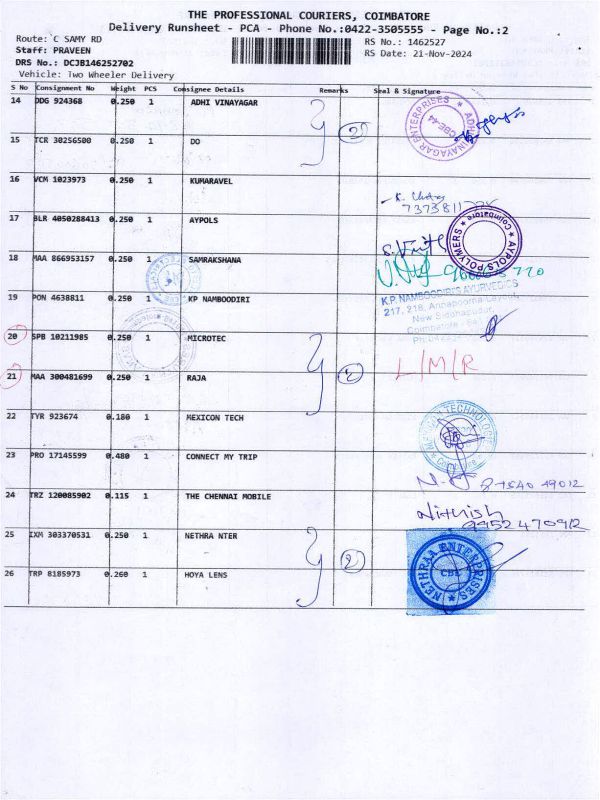 THE PROFESSIONAL COURIERS, COIMBATORE
Delivery Runsheet - PCA - Phone No.:0422-3505555 - Page No.:2
Route: C SAMY RD
RS No.: 1462527
Staff: PRAVEEN
RS Date: 21-Nov-2024
DRS No.: DCJB146252702
Vehicle: Two Wheeler Delivery
S No Consignment No Weight PCS Consignee Details Remarks Seal & Signature
14 DDG 924368 0.250 1 ADHI VINAYAGAR
2
ADHI VINAYAGAR ENTERPRISES ★ CBE-44
15 TCR 30256500 0.250 1 DO
16 VCM 1023973 0.250 1 KUMARAVEL
17 BLR 4050288413 0.250 1 AYPOLS
AYPOLS POLYMERS ★ Coimbatore ★
18 MAA 866953157 0.250 1 SAMRAKSHANA
19 PON 4638811 0.250 1 KP NAMBOODIRI
K.P. NAMBOODIRI'S AYURVEDICS
217, 218, Annapoorna Layout,
New Siddhapudur
Coimbatore
20 SPB 10211985 0.250 1 MICROTEC
21 MAA 300481699 0.250 1 RAJA
2
L/M/R
22 TYR 923674 0.180 1 MEXICON TECH
23 PRO 17145599 0.480 1 CONNECT MY TRIP
24 TRZ 120085902 0.115 1 THE CHENNAI MOBILE
Nithish
9952470912
25 IXM 303370531 0.250 1 NETHRA NTER
2
NETHRAA ENTERPRISES
CBE
26 TRP 8185973 0.260 1 HOYA LENS